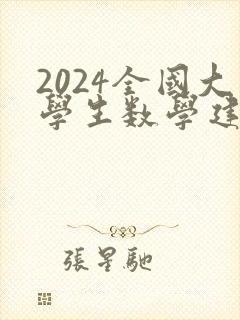 2024全國大
學生数學建
張星馳